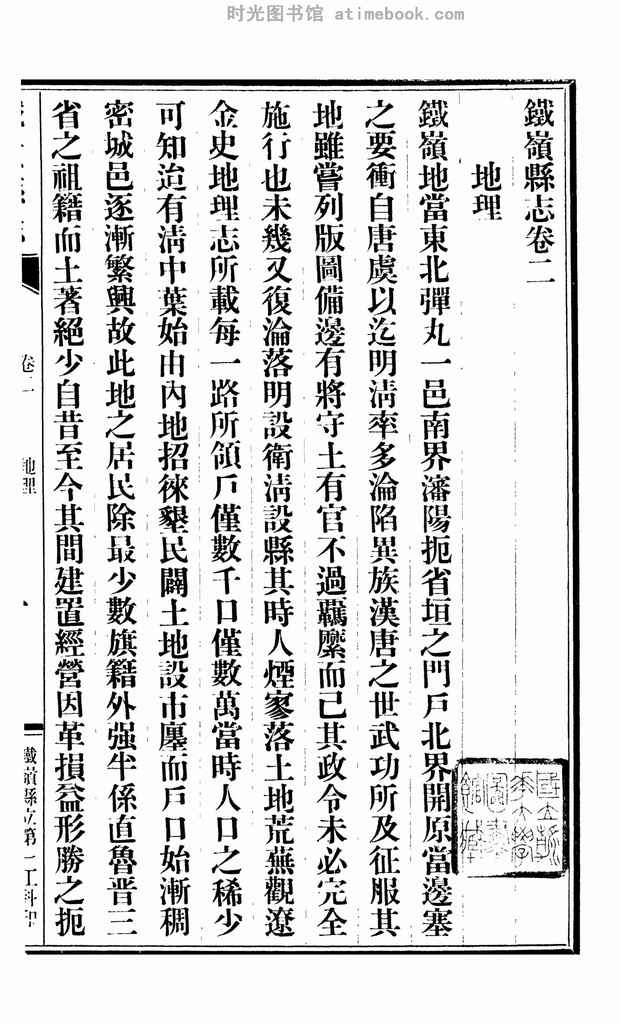 时光图书馆 atimebook.com
鐵嶺縣志卷二
地理
鐵嶺地當東北彈丸一邑南界瀋陽扼省垣之門戶北界開原當邊塞
之要衝自唐虞以迄明淸率多淪陷異族漢唐之世武功所及征服其
地雖嘗列版圖備邊有將守土有官不過羈縻而已其政令未必完全
施行也未幾又復淪落明設衛淸設縣其時人煙寥落土地荒蕪觀遼
金史地理志所載每一路所領戶僅數千口僅數萬當時人口之稀少
可知迨有淸中葉始由內地招徠墾民闢土地設市廛而戶口始漸稠
密城邑逐漸繁興故此地之居民除最少數旗籍外强半係直魯晋三
省之祖籍而土著絕少自昔至今其間建置經營因革損益形勝之扼
卷二
地理
鐵嶺縣立第一工科印